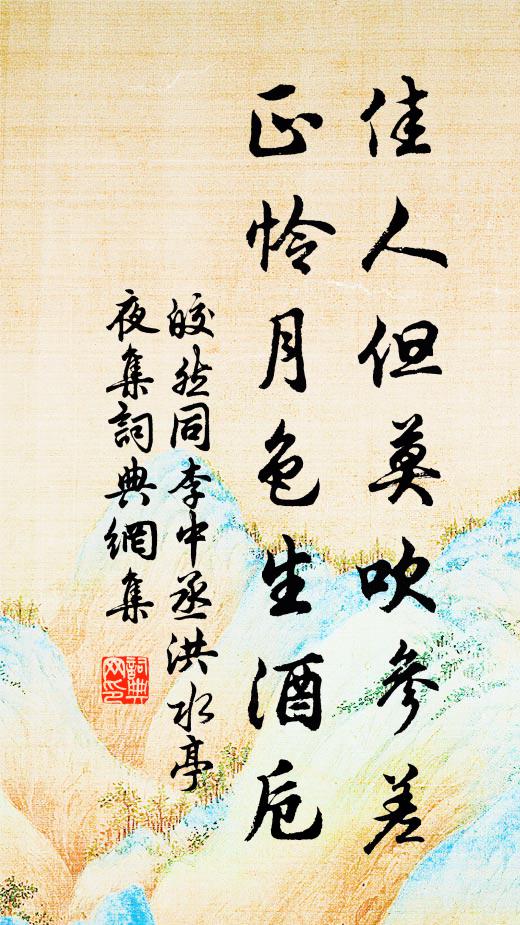 佳人但莫吹參差
正怜月色生酒卮
皎然同李中丞洪水亭
夜集詞典網集
詞典網印